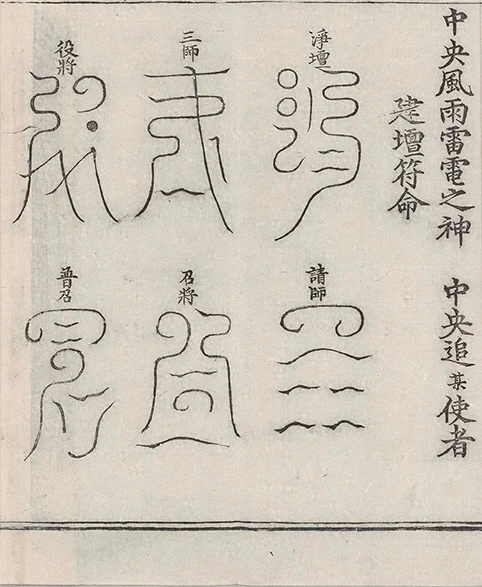 中央風雨雷電之神 中央追某使者
建壇符命
淨壇
請師
三師
召將
役將
普召